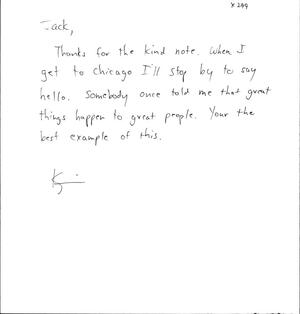 x 299
Jack,
Thanks for the kind note. When I
get to Chicago I'll stop by to say
hello. Somebody once told me that great
things happen to great people. Your the
best example of this.